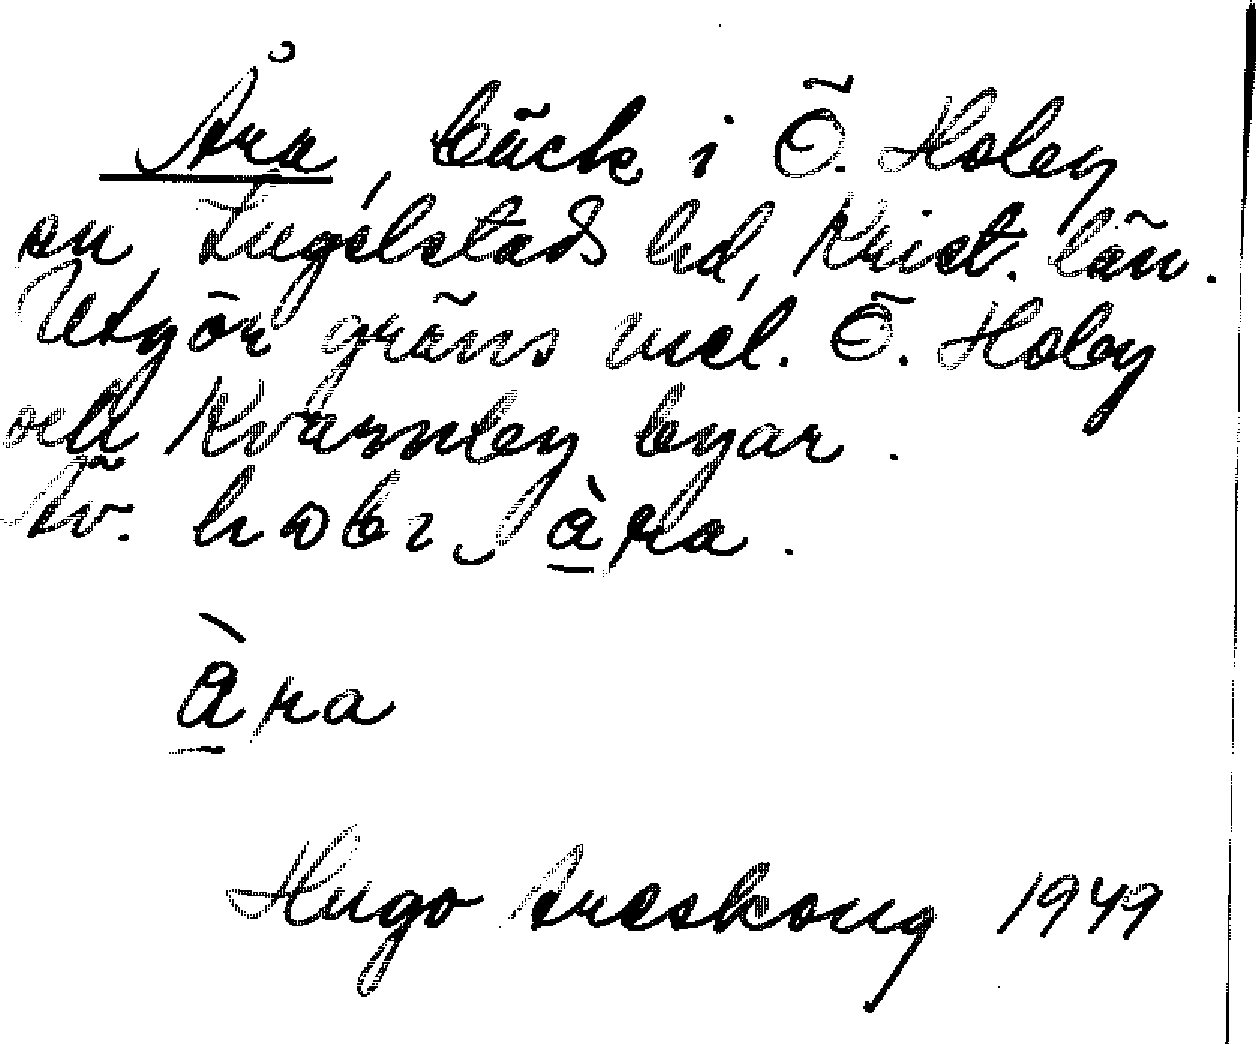 Åra, bäck i Ö. Hoby
sn, Ingelstads hd, Krist. län.
Utgör gräns mel. Ö. Hoby
och Kvarnby byar.
Äv.
àra.
àra
Hugo Areskoug 1949